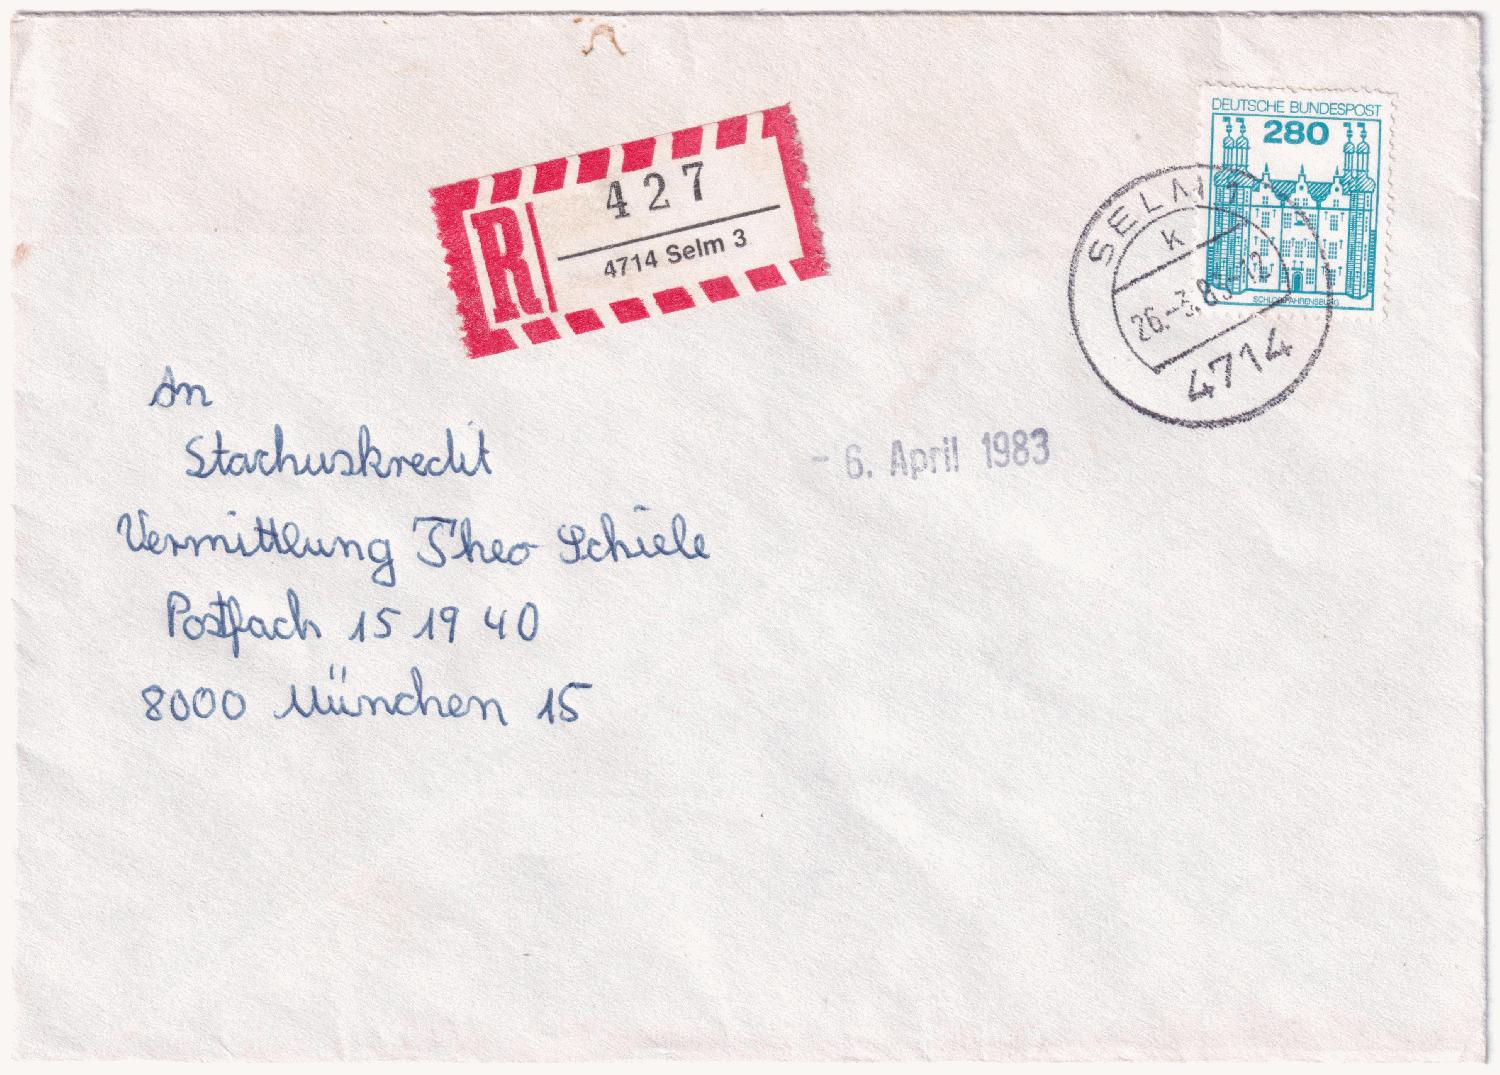 DEUTSCHE BUNDESPOST
280
SCHLOSS AHRENSBURG
SELM
K
26.-3.83-12
4714
R
427
4714 Selm 3
- 6. April 1983
An
Stachuskredit
Vermittlung Theo Schiele
Postfach 15 19 40
8000 München 15